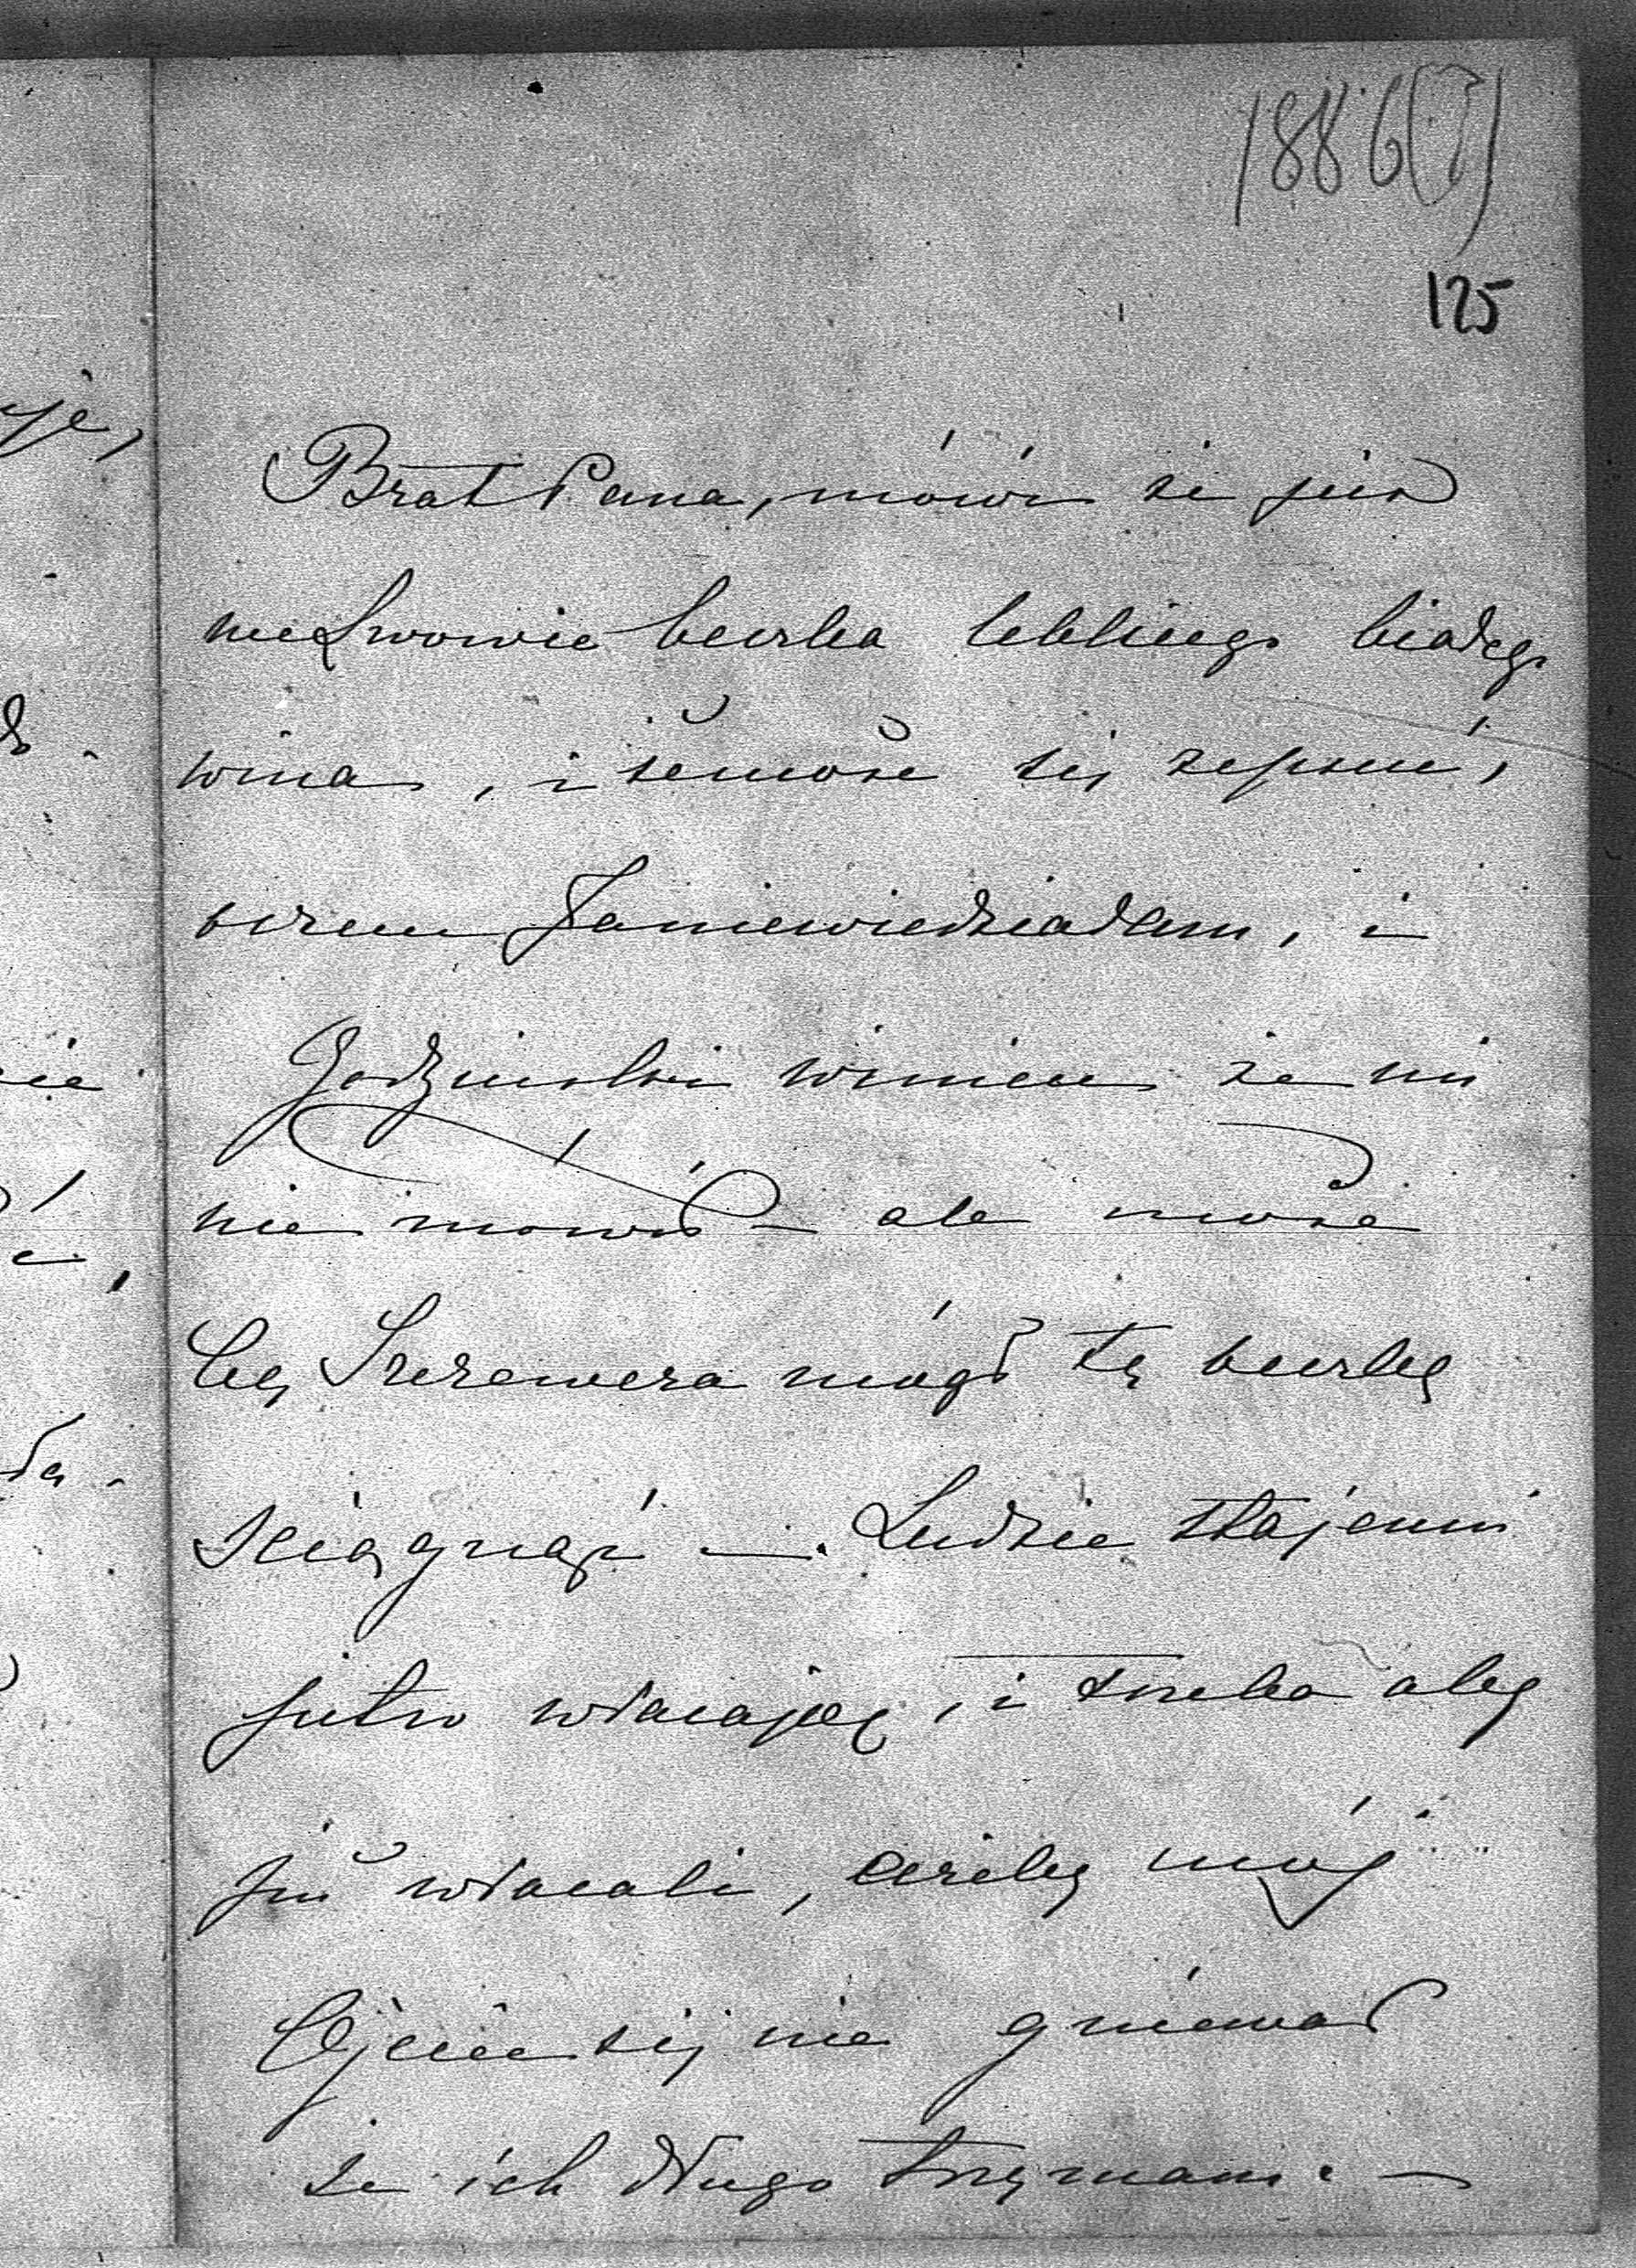 1886(?)
125
Brat Pana, mówi że jus
we Lwowie beczka lekkiego białego
wina, i że może się zepsuć,
o czem Ja nie wiedziałam, i
Godziński winien że mi
nie mówił — ale może
by Szeremeta mógł tę beczkę
ściągnąć —. Ludzie stajenni
jutro wracają, i trzeba aby
już wracali, ażeby mój
Ojciec się nie gniewał
że ich długo trzymam. —